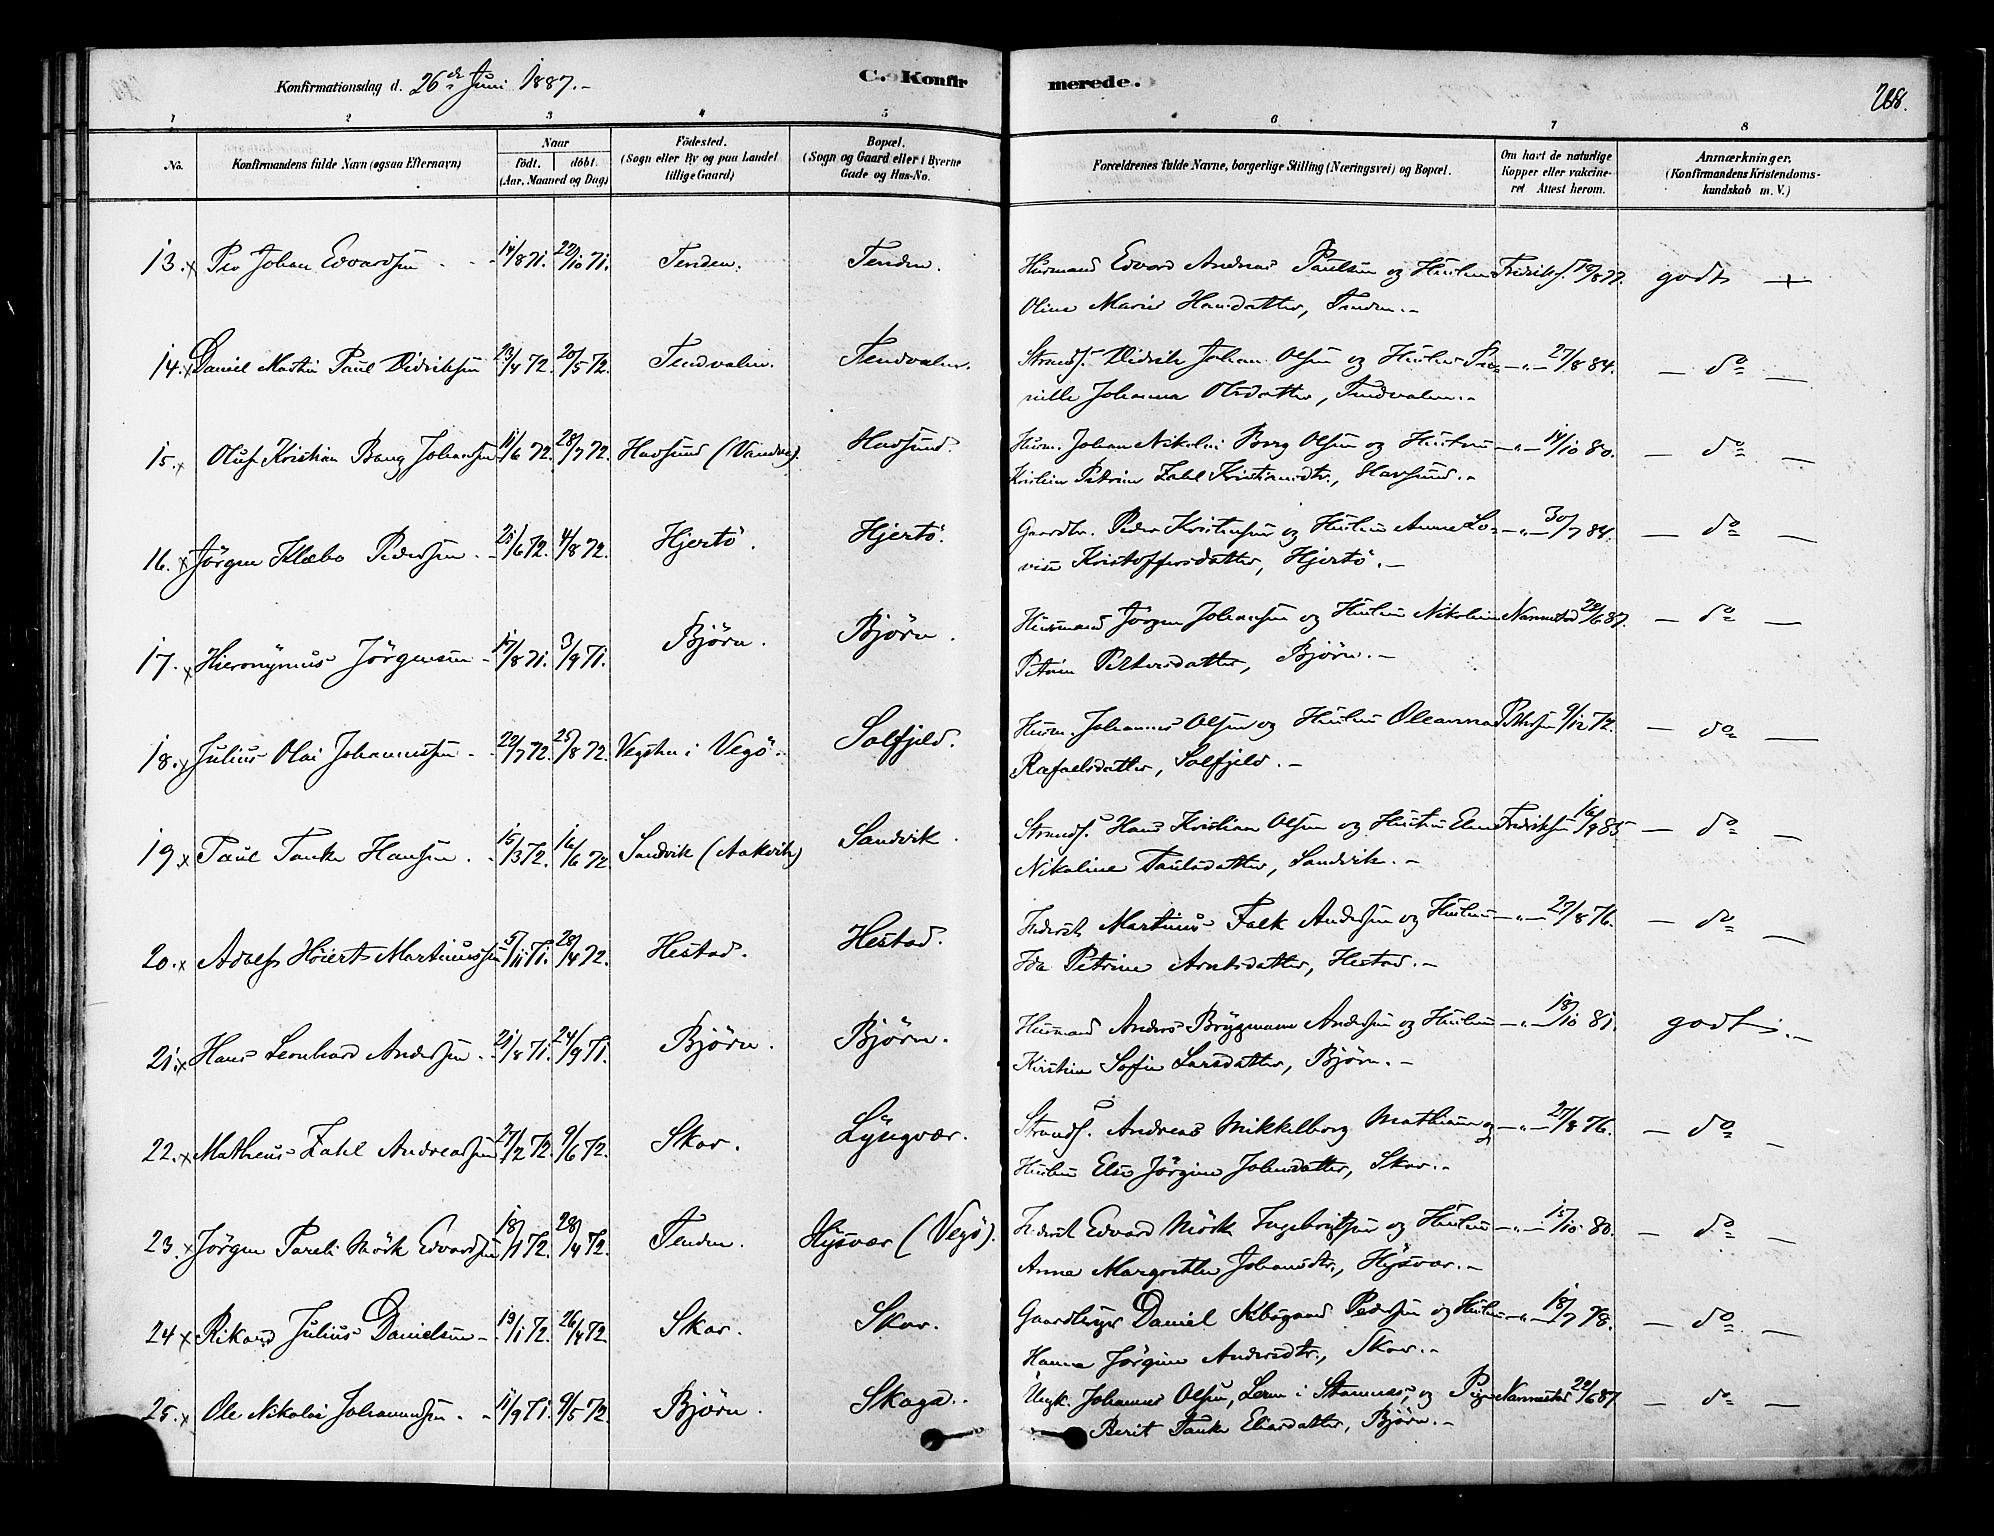 Konfirmationsdag d. 26de Juni 1887.-
C. Konfirmerede.
268.
1 2 3 4 5 6 7 8
No.
Konfirmandens fulde Navn (ogsaa Efternavn)
Naar
födt. döbt.
(Aar, Maaned og Dag)
Födested.
(Sogn eller By og paa Landet
tillige Gaard)
Bopæl.
(Sogn og Gaard eller i Byerne
Gade og Hus-No.
Forældrenes fulde Navne, borgerlige Stilling (Næringsvei) og Bopæl.
Om havt de naturlige
Kopper eller vakcine-
ret Attest herom.
Anmærkninger.
(Konfirmandens Kristendoms-
kundskab m. V.)
13. x Johan Edvardsen 14/8 71. 22/10 71. Tenden. Tenden. Husmand Edvard Andreas Paulsen og Hustru 77. godt +
Oline Marie Hansdatter, Tenden.-
14. x Daniel Martin Paul Didriksen 23/4 72. 20/5 72. Tendvalen. Tendvalen. Strands. Didrik Johan Olsen og Hustru Per- -"- 27/8 84. - do -
nille Johanna Olsdatter, Tendvalen.-
15. x Oluf Kristian Bang Johansen 11/6 72. 28/7 72. Havsund (Vandve). Havsund. Husm. Johan Nikolai Borg Olsen og Hustru -"- 14/10 80. - do -
Petrine Zahl Kristiansdtr., Havsund.-
16. x Jörgen Klæbo Pedersen. 25/6 72. 4/8 72. Hjertö. Hjertö. Gaardbr. Peder Kristensen og Hustru Anne Lo- -"- 30/7 84. - do -
vise Kristoffersdatter, Hjertö.-
17. x Hieronymus Jörgensen 17/8 71. 3/9 71. Björn. Björn. Husmand Jörgen Johansen og Hustru Nikoline Nannestad 20/6 87. - do -
Petrine Petersdatter, Björn.-
18. x Julius Olai Johannessen 22/7 72. 25/8 72. i Vegö. Solfjeld. Husm. Johannes Olsen og Hustru Oleanna Pettersen 9/12 72. - do -
Rafaelsdatter, Solfjeld.-
19. x Paul Tanke Hansen. 15/3 72. 16/6 72 Sandvik (Aakvik) Sandvik. Strands. Hans Kristian Olsen og Hustru Fredriksen 16/9 85. - do -
Nikoline Paulsdatter, Sandvik.-
20. x Adolf Höiert Martinussen 5/11 71. 28/4 72. Hestad. Hestad. Inderst Martinus Falk Andersen og Hustru -"- 27/8 76. - do -
Ida Petrine Arntsdatter, Hestad.-
21. x Hans Leonhard Andersen. 21/8 71. 24/9 71. Björn. Björn. Husmand Anders Bryggmann Andersen og Hustru -"- 18/10 81. godt.-
Kirstine Sofie Larsdatter, Björn.-
22. x Matheus Zahl Andreassen 27/2 72. 9/6 72. Skar. Lyngvær. Strands. Andreas Mikkelborg Mathisen og -"- 27/8 76. - do -
Hustru Else Jörgine Johnsdatter, Skar.-
23. x Jörgen Pareli Mörk Edvardsen 18/1 72. 28/4 72. Tenden. Hysvær (Vegö). Inderst Edvard Mörk Ingebrigtsen og Hustru -"- 15/10 80. - do -
Anna Margrethe Johansdtr., Hysvær.-
24 x Rikard Julius Danielsen 19/1 72. 26/4 72 Skar. Skar. Gaardbruger Daniel Pedersen og Hustru -"- 18/7 78. - do -
Hanna Jörgine Andersdtr., Skar.-
25. x Ole Nikolai Johannessen. 11/9 71. 9/5 72. Björn. Skaga. Ungk. Johannes Olsen, i Stamnes, og Pige Nannestad 20/6 87. - do -
Berit Tanke Eliasdatter, Björn.-